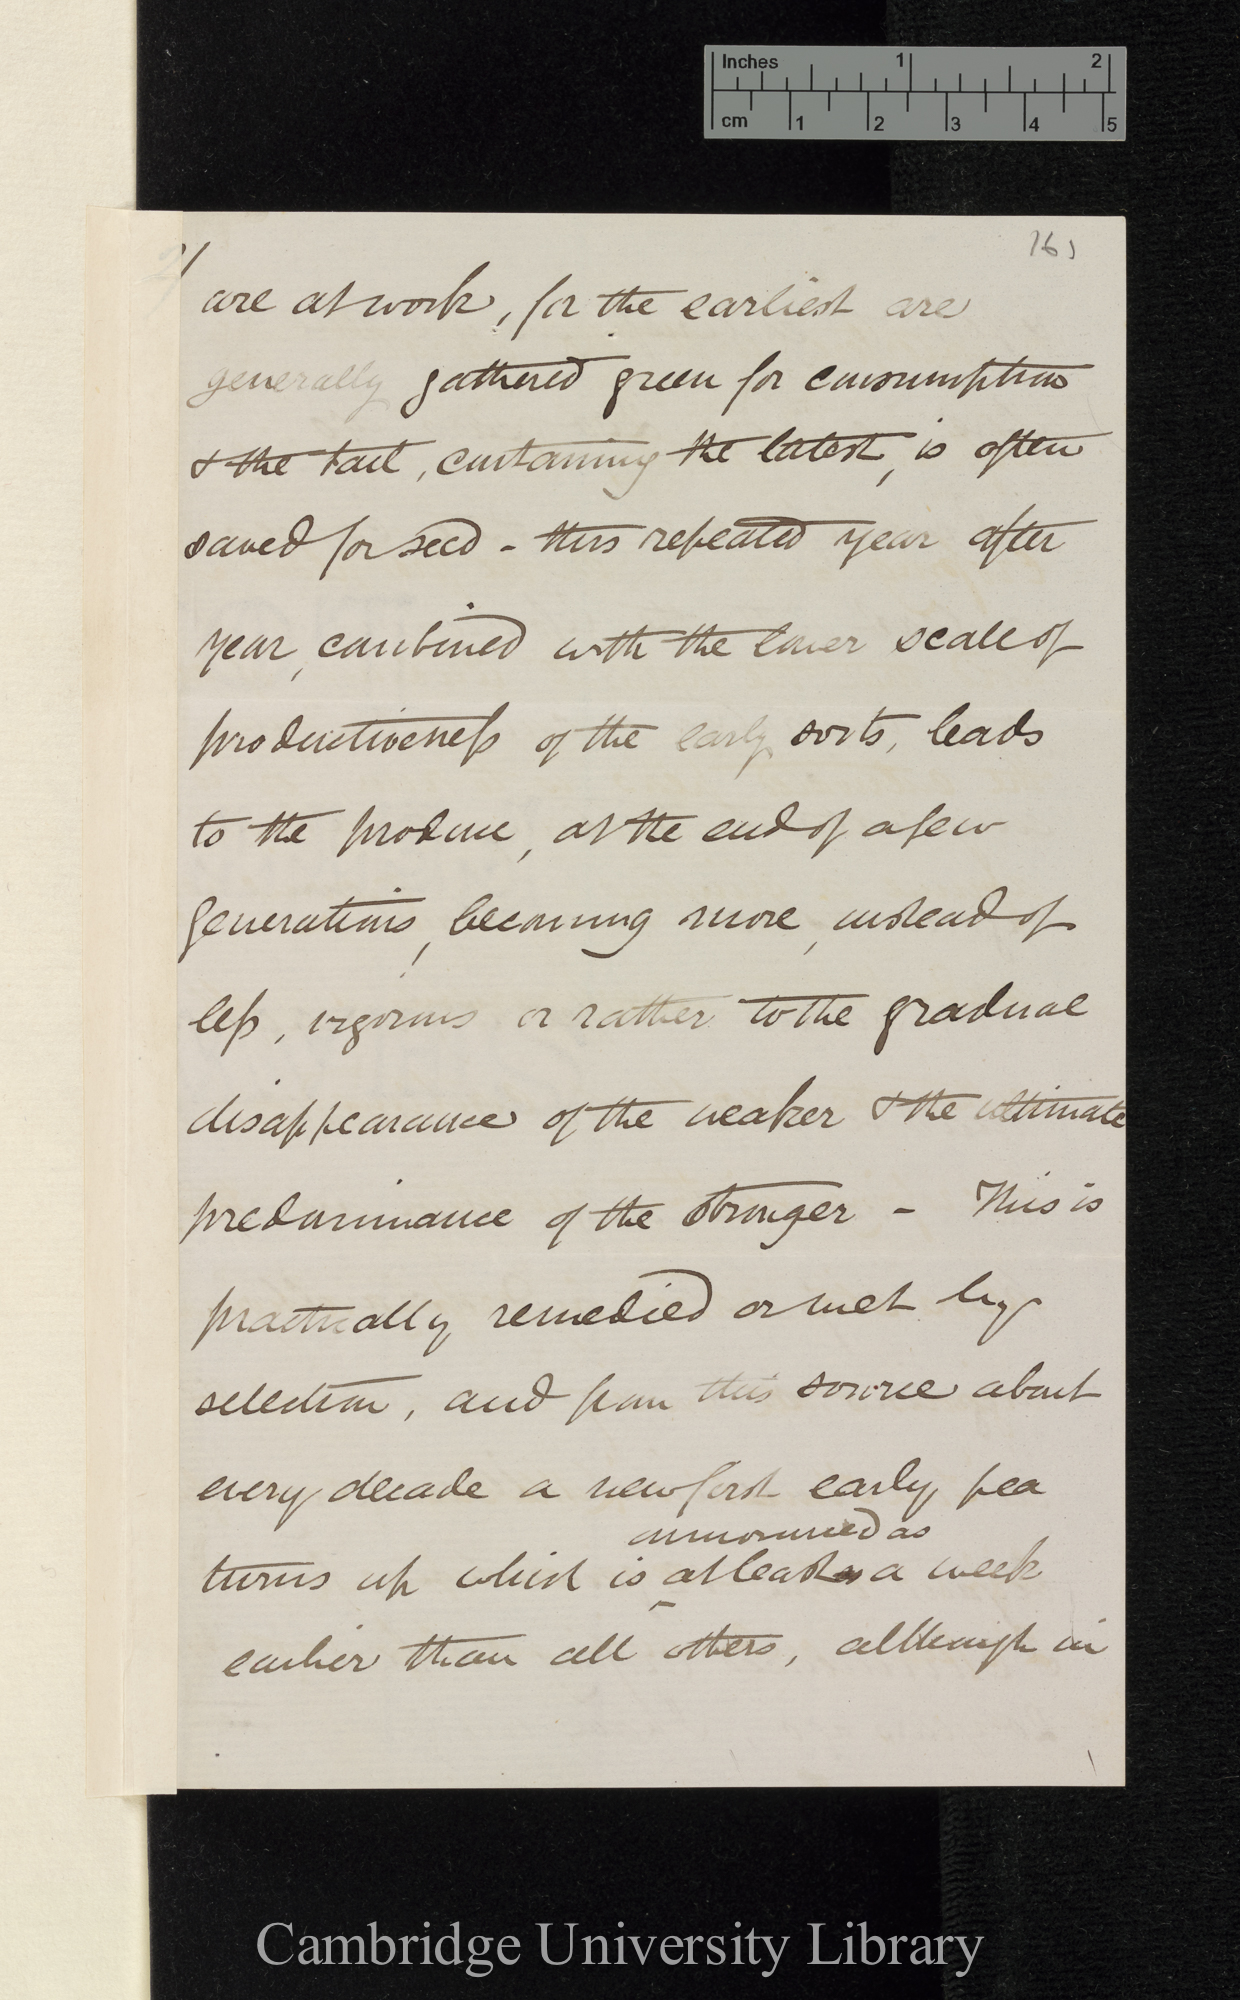 Inches 1 2
cm 1 2 3 4 5
2/
161
are at work, for the earliest are
generally gathered green for consumption
& the tail, containing the latest, is often
saved for seed - this repeated year after
year, combined with the lower scale of
productiveness of the early sorts, leads
to the produce, at the end of a few
generations, becoming more, instead of
less, vigorous or rather to the gradual
disappearance of the weaker & the ultimate
predominance of the stronger - This is
practically remedied or met by
selection, and from this source about
every decade a new first early pea
announced as
turns up which is at least a week
earlier than all others, although in
Cambridge University Library